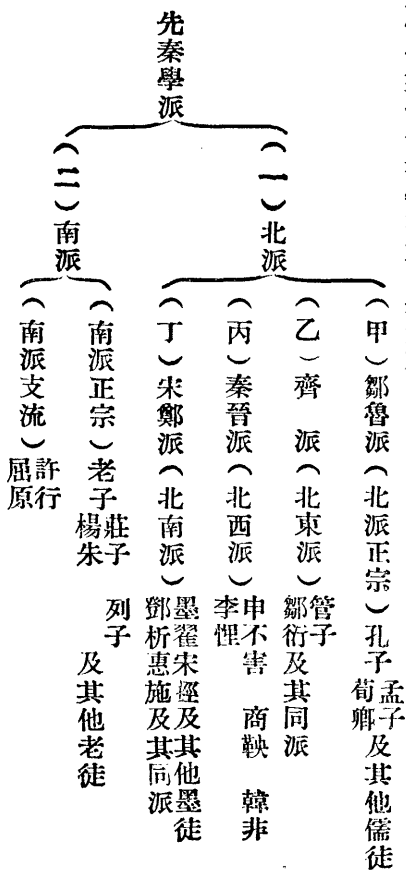 先秦學派
（一）北派
（甲）鄒魯派（北派正宗）孔子 孟子 荀卿 及其他儒徒
（乙）齊 派（北東派） 管子 鄒衍及其同派
（丙）秦晉派（北西派） 申不害 商鞅 韓非 李悝
（丁）宋鄭派（北南派） 墨翟宋牼及其他墨徒 鄧析惠施及其同派
（二）南派
（南派正宗）老子 莊子 列子 楊朱 及其他老徒
（南派支流） 許行 屈原